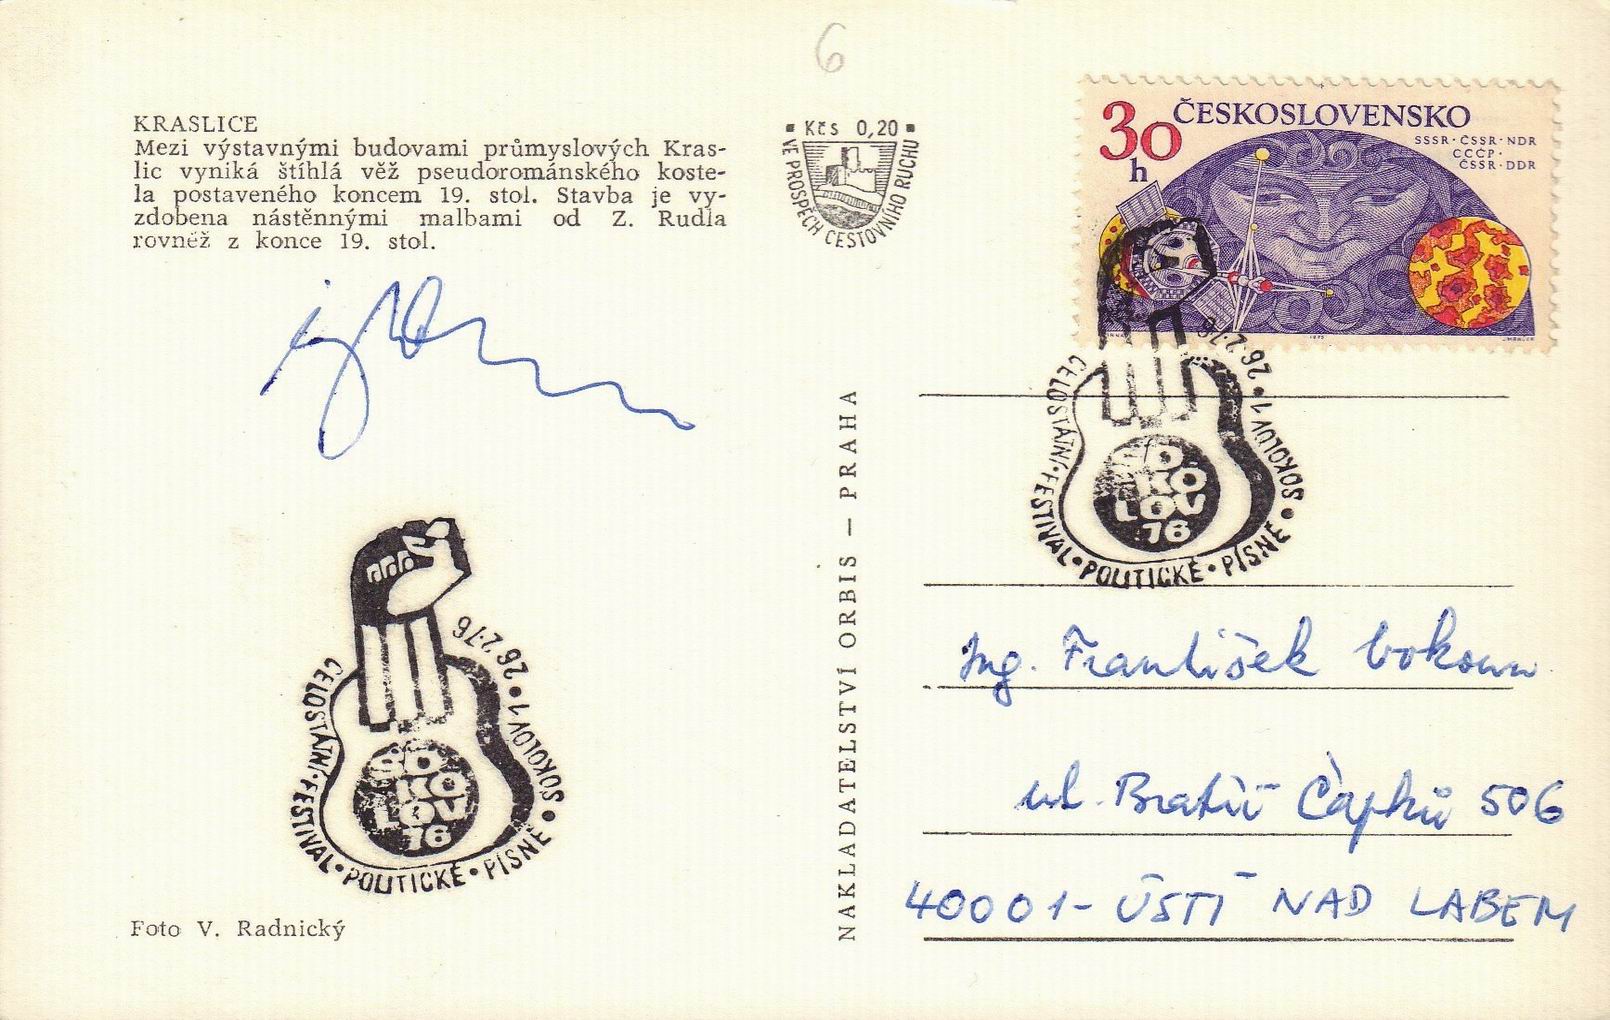 6
KRASLICE
Mezi výstavnými budovami průmyslových Kras-
lic vyniká štíhlá věž pseudorománského koste-
la postaveného koncem 19. stol. Stavba je vy-
zdobena nástěnnými malbami od Z. Rudla
rovněž z konce 19. stol.
Kčs 0,20
VE PROSPĚCH CESTOVNÍHO RUCHU
30 h
ČESKOSLOVENSKO
SSSR · ČSSR · NDR
СССР ·
ČSSR · DDR
1975
26.2.76 • SOKOLOV 1 •
CELOSTÁTNÍ • FESTIVAL • POLITICKÉ • PÍSNĚ
SO
KO
LOV
76
NAKLADATELSTVÍ ORBIS — PRAHA
26.2.76 • SOKOLOV 1 •
CELOSTÁTNÍ • FESTIVAL • POLITICKÉ • PÍSNĚ
SO
KO
LOV
76
Ing. František
ul. Bratří Čapků 506
40001 - ÚSTÍ NAD LABEM
Foto V. Radnický